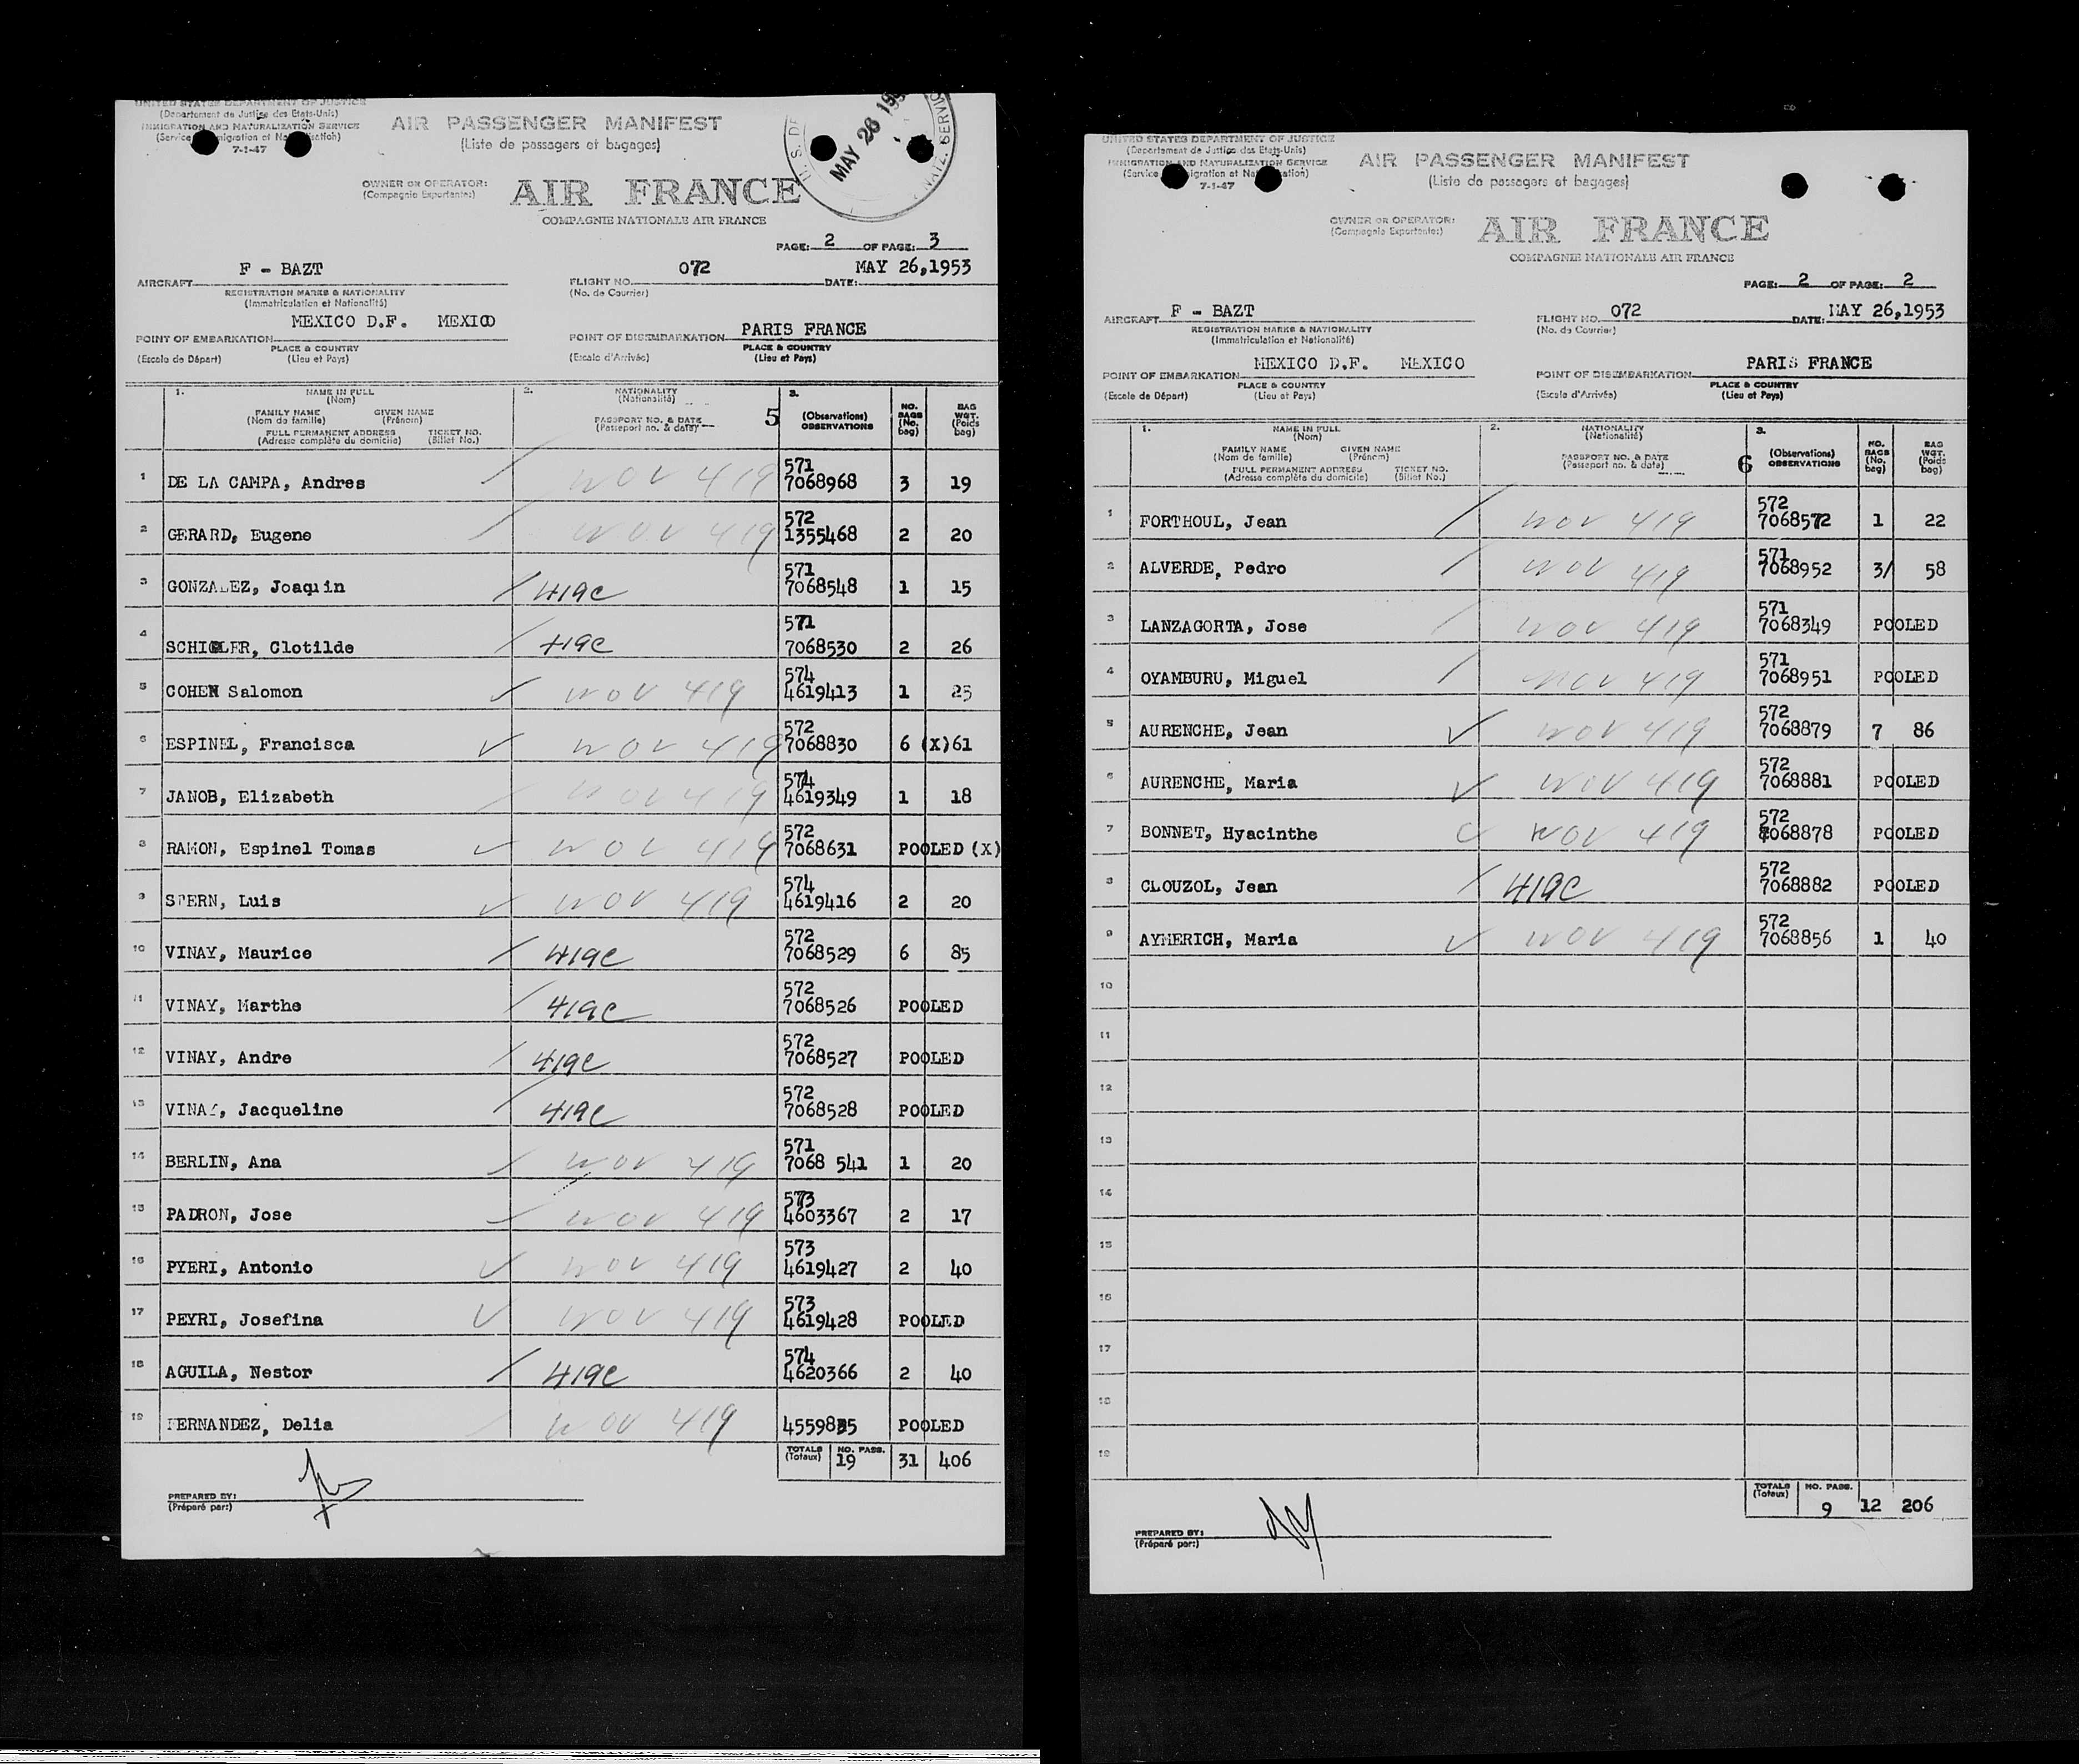 UNITED STATES DEPARTMENT OF JUSTICE
(Departement de Justice des Etats-Unis)
IMMIGRATION AND NATURALIZATION SERVICE
7-1-47
AIR PASSENGER MANIFEST
(Liste de passagers et bagages)
MAY 26
OWNER OR OPERATOR:
(Compagnie Exportante:)
AIR FRANCE
COMPAGNIE NATIONALE AIR FRANCE
PAGE: 2 OF PAGE: 3
AIRCRAFT F - BAZT
FLIGHT NO. 072 DATE: MAY 26,1953
REGISTRATION MARKS & NATIONALITY
(No. de Courrier)
(Immatriculation et Nationalité)
POINT OF EMBARKATION MEXICO D.F. MEXICO
POINT OF DISEMBARKATION PARIS FRANCE
PLACE & COUNTRY PLACE & COUNTRY
(Escale de Départ) (Lieu et Pays) (Escale d'Arrivée) (Lieu et Pays)
1. NAME IN FULL 2. NATIONALITY 3.
(Nom) (Nationalité)
FAMILY NAME GIVEN NAME
(Nom de famille) (Prénom)
FULL PERMANENT ADDRESS TICKET NO.
(Adresse complète du domicile) (Billet No.)
PASSPORT NO. & DATE
(Passeport no. & date)
5
(Observations)
OBSERVATIONS
NO. BAGS (No. bag) BAG WGT. (Poids bag)
571
1 DE LA CAMPA, Andres wov 419 7068968 3 19
572
2 GERARD, Eugene wov 419 1355468 2 20
571
3 GONZALEZ, Joaquin 419c 7068548 1 15
571
4 Clotilde 419c 7068530 2 26
574
5 COHEN Salomon wov 419 4619413 1 25
572
6 ESPINEL, Francisca wov 419 7068830 6 (X)61
574
7 JANOB, Elizabeth wov 419 4619349 1 18
572
8 RAMON, Espinel Tomas wov 419 7068631 POOLED (X)
574
9 STERN, Luis wov 419 4619416 2 20
572
10 VINAY, Maurice 419c 7068529 6 85
572
11 VINAY, Marthe 419c 7068526 POOLED
572
12 VINAY, Andre 419c 7068527 POOLED
572
13 VINAY, Jacqueline 419c 7068528 POOLED
571
14 BERLIN, Ana wov 419 7068 541 1 20
573
15 PADRON, Jose wov 419 4603367 2 17
573
16 PYERI, Antonio wov 419 4619427 2 40
573
17 PEYRI, Josefina wov 419 4619428 POOLED
574
18 AGUILA, Nestor 419c 4620366 2 40
19 FERNANDEZ, Delia wov 419 POOLED
TOTALS (Totaux) NO. PASS. 19 31 406
PREPARED BY:
(Préparé par:)
UNITED STATES DEPARTMENT OF JUSTICE
(Departement de Justice des Etats-Unis)
IMMIGRATION AND NATURALIZATION SERVICE
7-1-47
AIR PASSENGER MANIFEST
(Liste de passagers et bagages)
OWNER OR OPERATOR:
(Compagnie Exportante:)
AIR FRANCE
COMPAGNIE NATIONALE AIR FRANCE
PAGE: 2 OF PAGE: 2
AIRCRAFT F - BAZT
FLIGHT NO. 072 DATE: MAY 26,1953
REGISTRATION MARKS & NATIONALITY
(No. de Courrier)
(Immatriculation et Nationalité)
POINT OF EMBARKATION MEXICO D.F. MEXICO
POINT OF DISEMBARKATION PARIS FRANCE
PLACE & COUNTRY PLACE & COUNTRY
(Escale de Départ) (Lieu et Pays) (Escale d'Arrivée) (Lieu et Pays)
1. NAME IN FULL 2. NATIONALITY 3.
(Nom) (Nationalité)
FAMILY NAME GIVEN NAME
(Nom de famille) (Prénom)
FULL PERMANENT ADDRESS TICKET NO.
(Adresse complète du domicile) (Billet No.)
PASSPORT NO. & DATE
(Passeport no. & date)
6
(Observations)
OBSERVATIONS
NO. BAGS (No. bag) BAG WGT. (Poids bag)
572
1 FORTHOUL, Jean wov 419 7068572 1 22
571
2 ALVERDE, Pedro wov 419 7068952 3/ 58
571
3 LANZAGORTA, Jose wov 419 7068349 POOLED
571
4 OYAMBURU, Miguel wov 419 7068951 POOLED
572
5 AURENCHE, Jean wov 419 7068879 7 86
572
6 AURENCHE, Maria wov 419 7068881 POOLED
572
7 BONNET, Hyacinthe wov 419 7068878 POOLED
572
8 CLOUZOL, Jean 419c 7068882 POOLED
572
9 AYMERICH, Maria wov 419 7068856 1 40
10
11
12
13
14
15
16
17
18
19
TOTALS (Totaux) NO. PASS. 9 12 206
PREPARED BY:
(Préparé par:)